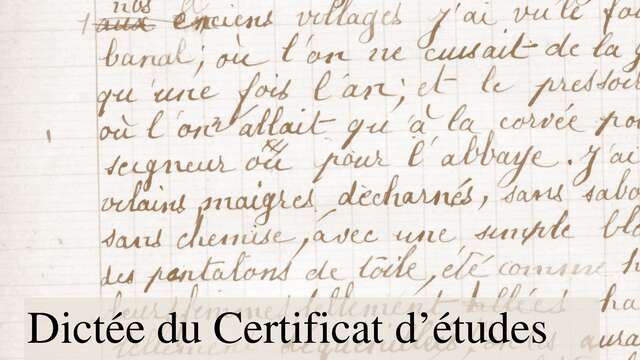 nos
aux anciens villages j'ai vu le fo
banal; où l'on ne cuisait de la g
qu'une fois l'an; et le pressoir
où l'on n'allait qu'à la corvée po
seigneur où pour l'abbaye. J'ai
vilains maigres décharnés, sans sabo
sans chemise, avec une simple blo
des pantalons de toile, été comme h
leurs femmes tellement ha
tellement aura
Dictée du Certificat d'études